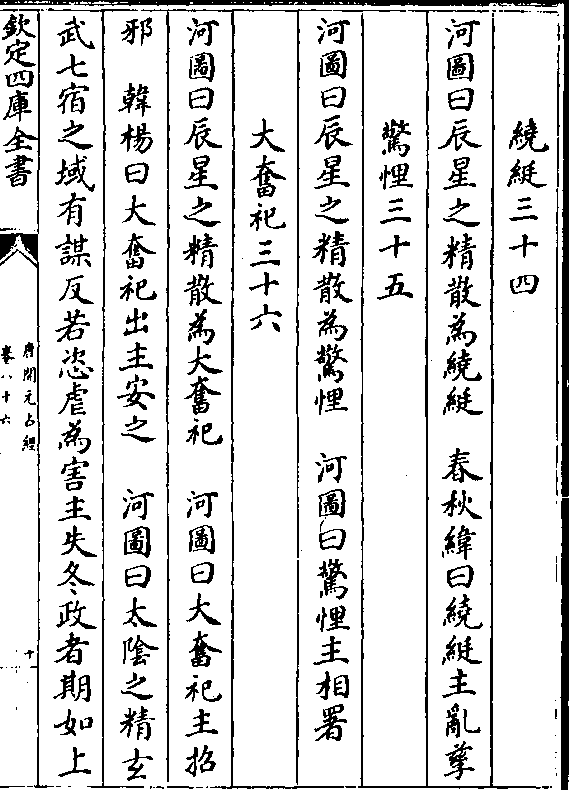 繞綎三十四
河圖曰辰星之精散為繞綎　春秋緯曰繞綎主亂孳
驚悝三十五
河圖曰辰星之精散為驚悝　河圖曰驚悝主相署
大奮祀三十六
河圖曰辰星之精散為大奮祀　河圖曰大奮祀主招
邪　韓楊曰大奮祀出主安之　河圖曰太陰之精玄
武七宿之域有謀反若恣虐為害主失冬政者期如上
欽定四庫全書
唐開元占經
卷八十六
十